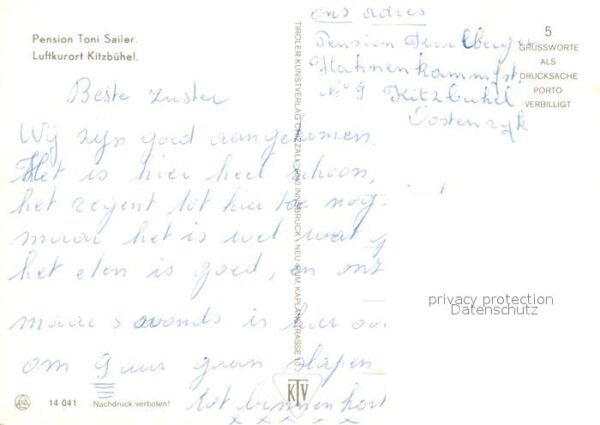 Pension Toni Sailer.
Luftkurort Kitzbühel.
ons adres
Pension
Hahnenkammstr.
N° 9 Kitzbuhel
Oostenryk
5
GRUSSWORTE
ALS
DRUCKSACHE
PORTO
VERBILLIGT
Beste zuster
Wij zijn goed aangekomen
Het is hier heel schoon,
het regent tot hier toe nog.
maar het is wel wat
het eten is goed, en onz
maar s avonds is hier
om 9 uur gaan slapen
tot binnenkort
x x x x x
TIROLER KUNSTVERLAG CHIZZALI, 6020 INNSBRUCK - NEU-RUM, KAPLANSTRASSE
privacy protection
Datenschutz
KTV
14 041
Nachdruck verboten!